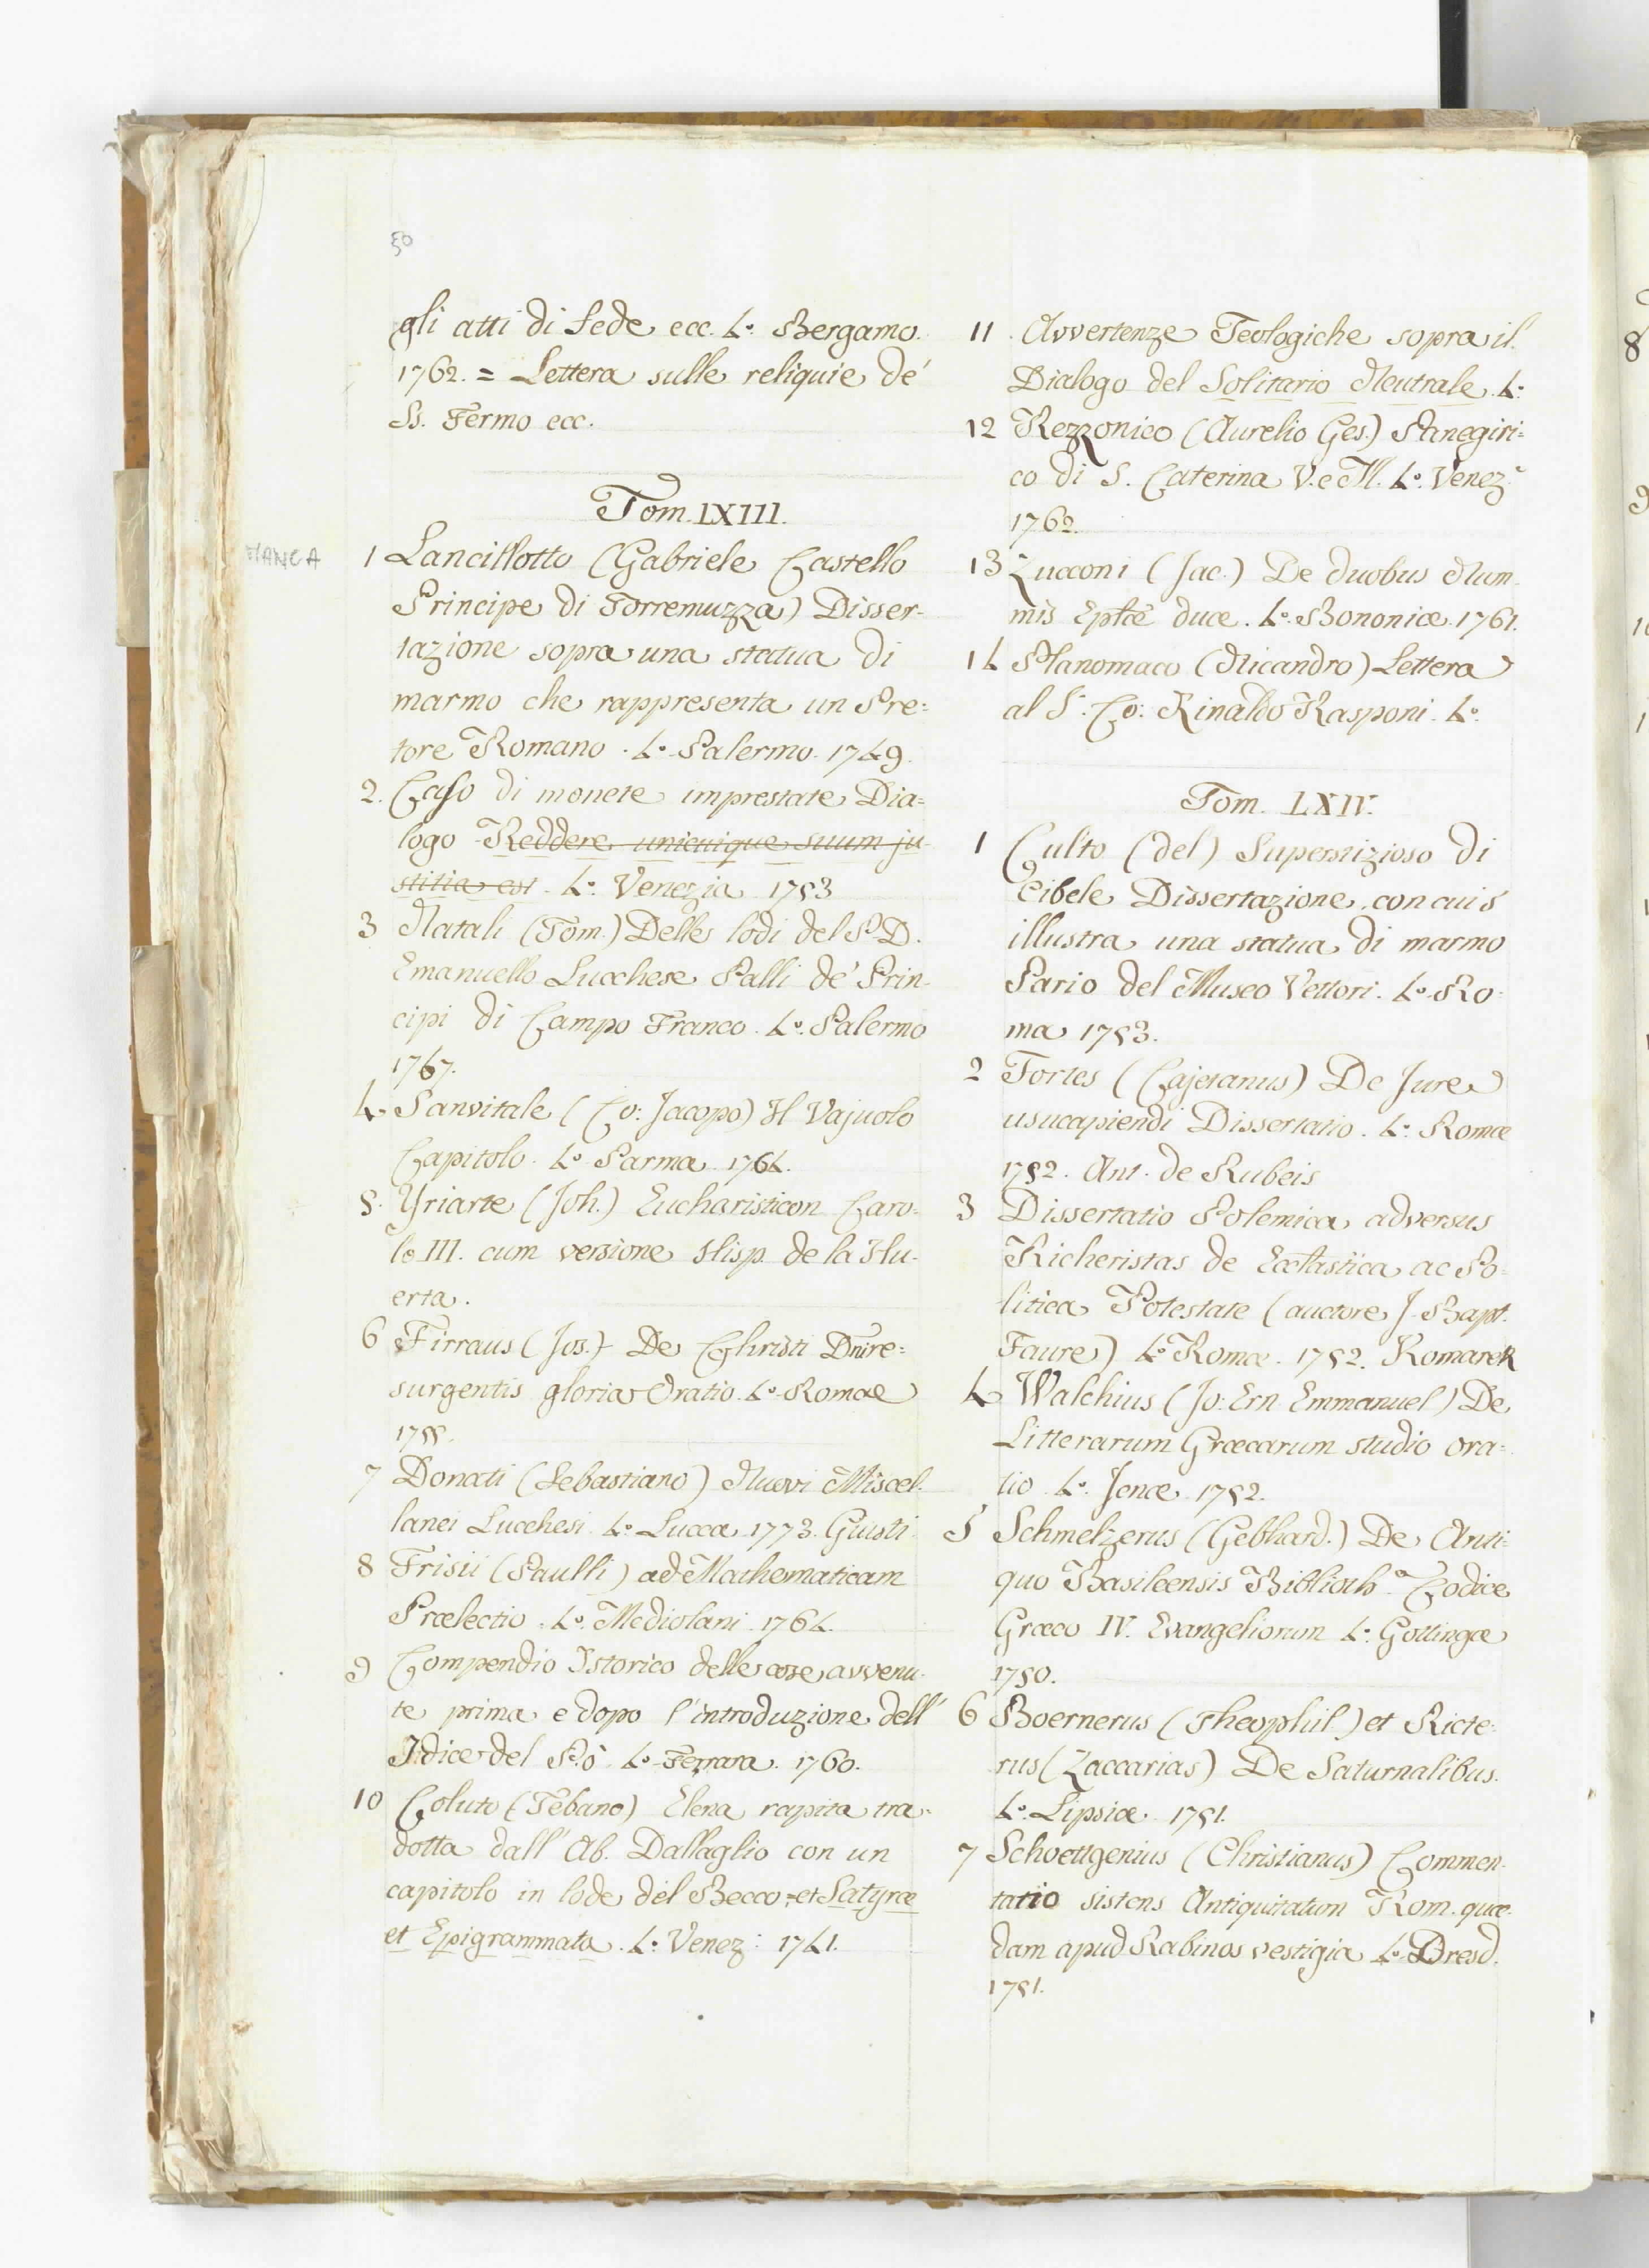 50
gli atti di fede ecc. 4.° Bergamo.
1762. = Lettera sulle reliquie de'
Ss. Fermo ecc.
Tom. LXIII.
MANCA
1 Lancillotto (Gabriele Castello
Principe di Torremuzza) Disser-
tazione sopra una statua di
marmo che rappresenta un Pre=
tore Romano. 4.° Palermo. 1749.
2. Caso di monete imprestate Dia=
logo Reddere unicuique suum ju-
stitia est. 4.° Venezia 1753
3 Natali (Tom.) Delle lodi del P. D.
Emanuello Lucchese Palli de' Prin-
cipi di Campo Franco. 4.° Palermo
1767.
4. Sanvitale (Co: Jacopo) Il Vajuolo
Capitolo. 4.° Parma. 1764.
5. Yriarte (Joh.) Eucharisticon Caro=
lo III. cum versione Hisp. de la Hu-
erta.
6 Firraus (Jos.) De Christi Dni re=
surgentis gloria Oratio. 4.° Romae
1755.
7 Donati (Sebastiano) Nuovi Miscel-
lanei Lucchesi. 4.° Lucca 1773. Giusti
8 Frisii (Paulli) ad Mathematicam
Prælectio. 4.° Mediolani. 1764.
9 Compendio Istorico delle cose avvenu-
te prima e dopo l'introduzione dell'
Idice del Pò. 4.° Ferrara. 1760.
10 Coluto (Tebano) Elena rapita tra-
dotta dall' Ab. Dallaglio con un
capitolo in lode del Becco = et Satyræ
et Epigrammata. 4.° Venez: 1741.
11 Avvertenze Teologiche sopra il
Dialogo del Solitario Neutrale. 4.°
12 Rezzonico (Aurelio Ges.) Panegiri=
co di S. Caterina V. e M. 4.° Venez.ª
1762.
13 Zucconi (Jac.) De duobus Num-
mis Ephæ duce. 4.° Bononiæ. 1761.
14 Planomaco (Nicandro) Lettera
al S. Co: Rinaldo Rasponi. 4.°
Tom. LXIV.
1 Culto (del) Superstizioso di
Cibele Dissertazione, con cui s
illustra una statua di marmo
Pario del Museo Vettori. 4.° Ro-
ma 1753.
2 Fortes (Cajetanus) De Jure
usucapiendi Dissertatio. 4.° Romæ
1752. Ant. de Rubeis
3 Dissertatio Polemica adversus
Richeristas de Ecclastica ac Po-
litica Potestate (auctore J. Bapt.
Faure) 4.° Romæ. 1752. Komarek
4 Walchius (Jo: Ern. Emmanuel) De
Litterarum Græcarum studio ora=
tio. 4.° Jenæ. 1752.
5 Schmelzerus (Gebhard.) De Anti=
quo Basileensis Biblioth.ª Codice
Græco IV. Evangeliorum 4.° Gottingæ
1750.
6 Boernerus (Theophil.) et Ricte-
rus (Zaccarias) De Saturnalibus.
4.° Lipsiæ. 1751.
7 Schoettgenius (Christianus) Commen-
tatio sistens Antiquitatum Rom. quæ-
dam apud Rabinos vestigia 4.° Dresd.
1751.